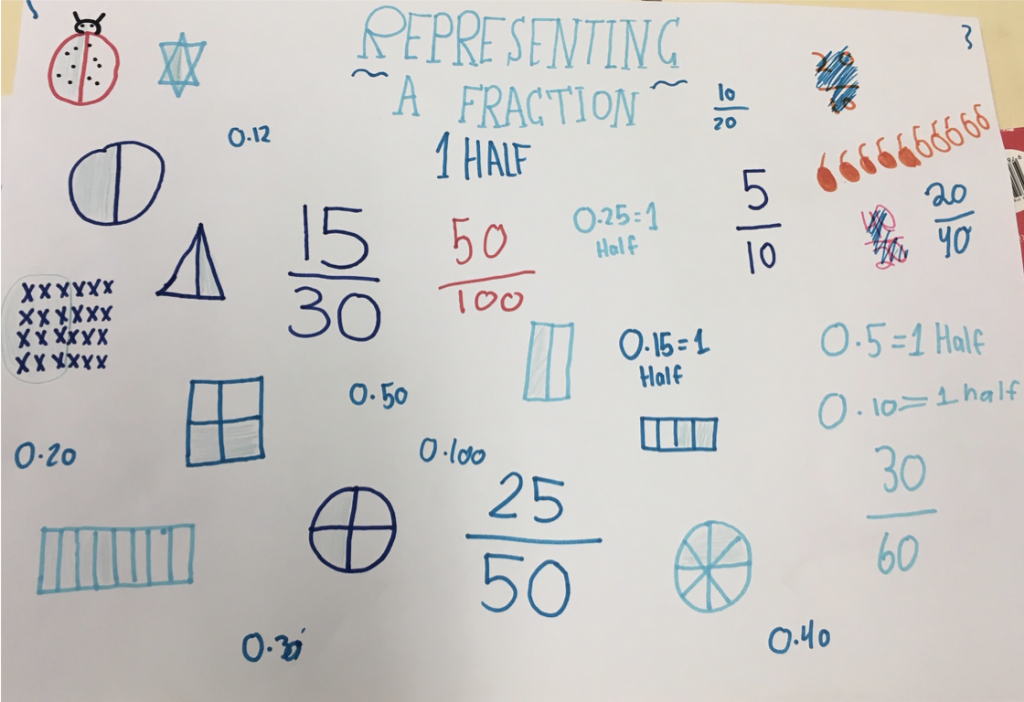 REPRESENTING
A FRACTION
1 HALF
3
10
20
0.12
5
10
20
40
15
30
50
100
0.25=1
Half
xxxxxx
xxxxxx
xxxxxx
xxxxxx
0.15=1
Half
0.5=1 Half
0.10=1 half
0.50
0.20
0.100
25
50
30
60
0.40